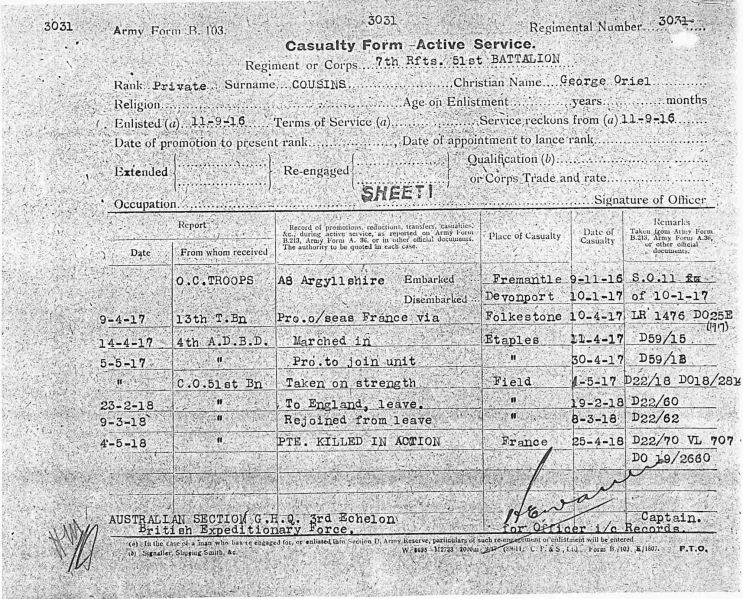 3031
3031
Army Form B. 103.
Regimental Number 3031
Casualty Form—Active Service.
Regiment or Corps 7th Rfts. 51st BATTALION
Rank Private Surname COUSINS Christian Name George Oriel
Religion Age on Enlistment years months
Enlisted (a) 11-9-16 Terms of Service (a) Service reckons from (a) 11-9-16
Date of promotion to present rank Date of appointment to lance rank
Extended Re-engaged Qualification (b)
or Corps Trade and rate
SHEET 1
Occupation Signature of Officer
Report
Date From whom received
Record of promotions, reductions, transfers, casualties, &c., during active service, as reported on Army Form B.213, Army Form A. 36, or in other official documents. The authority to be quoted in each case.
Place of Casualty
Date of Casualty
Remarks
Taken from Army Form B.213, Army Form A.36, or other official documents.
O.C.TROOPS A8 Argyllshire Embarked Fremantle 9-11-16 S.O.11
Disembarked Devonport 10-1-17 of 10-1-17
9-4-17 13th T.Bn Pro.o/seas France via Folkestone 10-4-17 LR 1476 DO25E
(1917)
14-4-17 4th A.D.B.D. Marched in Etaples 11-4-17 D59/15
5-5-17 " Pro.to join unit " 30-4-17 D59/1B
" C.O.51st Bn Taken on strength Field 1-5-17 D22/18 DO18/281
23-2-18 " To England, leave. " 19-2-18 D22/60
9-3-18 " Rejoined from leave " 8-3-18 D22/62
4-5-18 " PTE. KILLED IN ACTION France 25-4-18 D22/70 VL 707
DO 19/2660
AUSTRALIAN SECTION G.H.Q. 3rd Echelon
British Expeditionary Force.
Captain.
for Officer i/c Records.
(a) In the case of a man who has re-engaged for, or enlisted into Section D, Army Reserve, particulars of such re-engagement or enlistment will be entered
(b) Signaller, Shoeing Smith, &c.
Form B./103 E/1807. P.T.O.